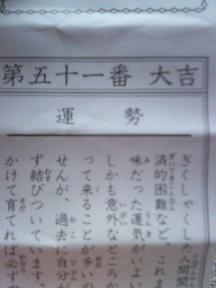 第五十一番 大吉
運勢
ぎくしゃくした人間関
済的困難など、これま
味だった運気がいよい
しかも意外なところか
って来ることが多いの
せんが、過去に自分が
ず結びついています。
かけて育てれば必ず